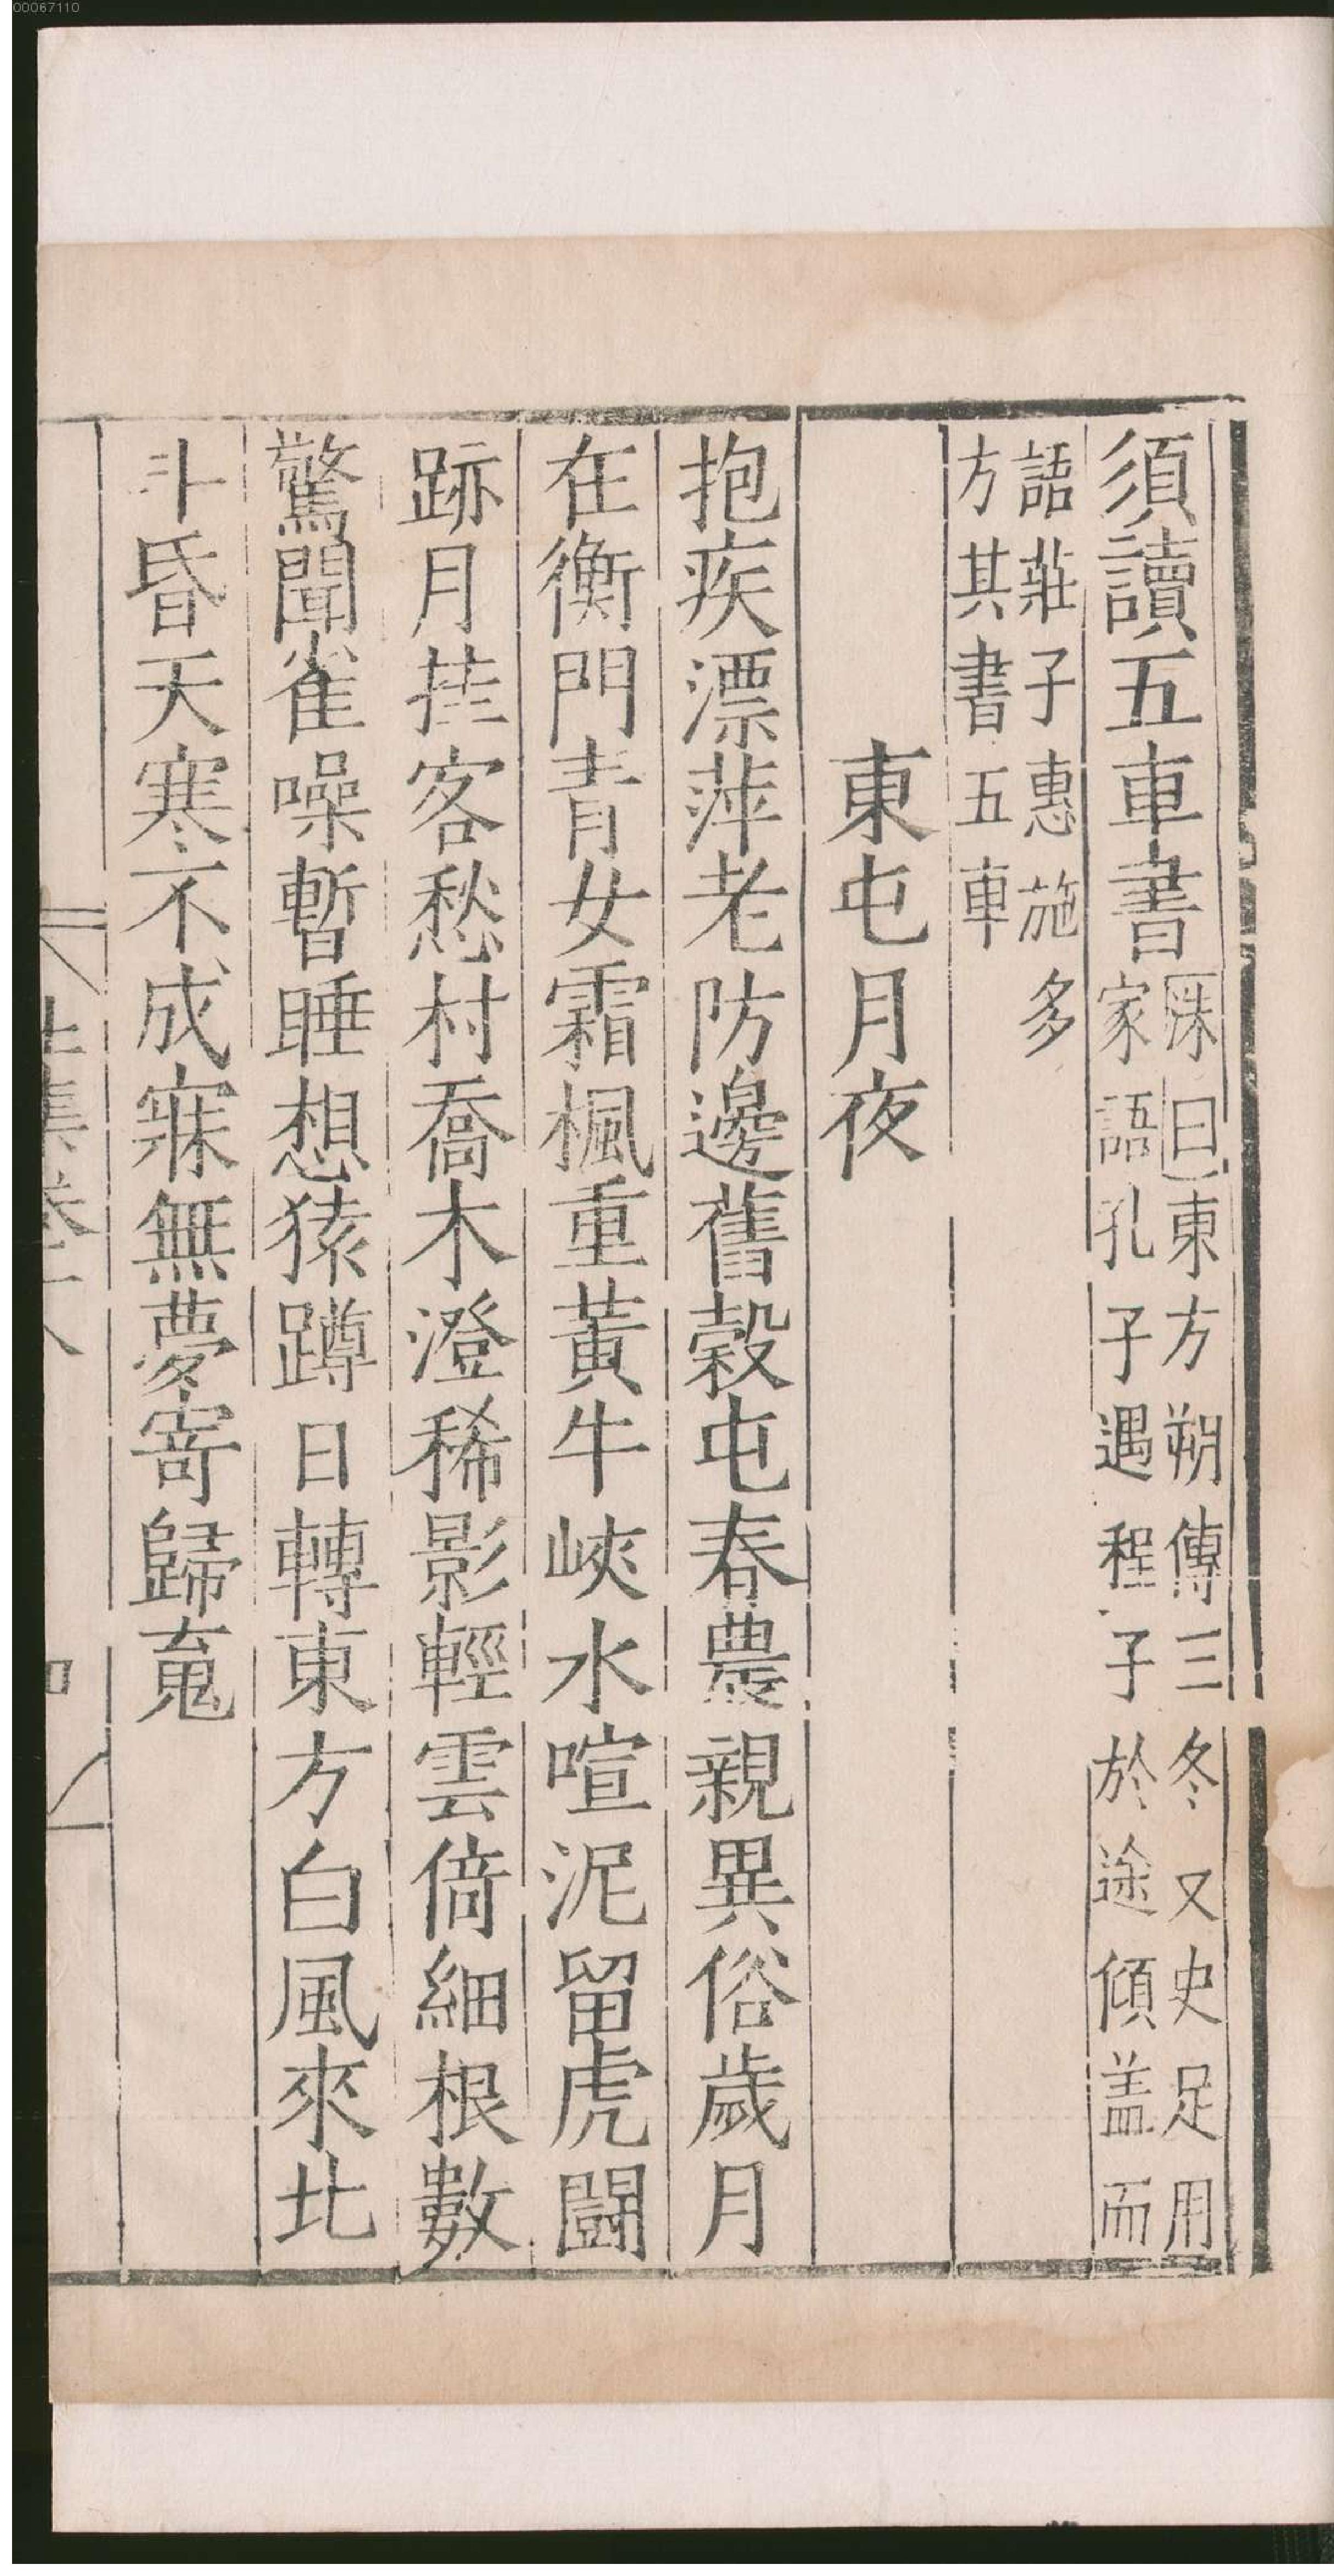 00067110
須讀五車書洙曰東方朔傳三冬文史足用家語孔子遇程子於途傾盖而
語莊子惠施多方其書五車
東屯月夜
抱疾漂萍老防邊舊糓屯春農親異俗歲月
在衡門青女霜楓重黃牛峽水喧泥留虎鬪
跡月挂客愁村喬木澄稀影輕雲倚細根數
驚聞雀噪暫睡想猿蹲日轉東方白風來北
斗昏天寒不成寐無夢寄歸䰟